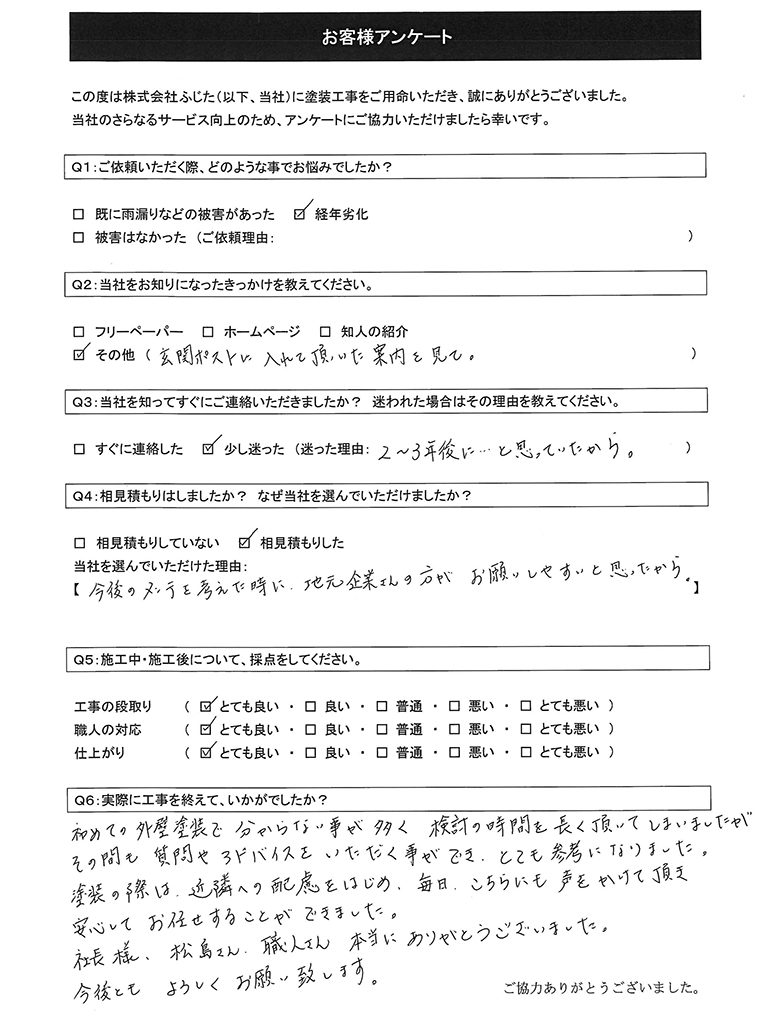 お客様アンケート
この度は株式会社ふじた(以下、当社)に塗装工事をご用命いただき、誠にありがとうございました。
当社のさらなるサービス向上のため、アンケートにご協力いただけましたら幸いです。
Q1:ご依頼いただく際、どのような事でお悩みでしたか?
□ 既に雨漏りなどの被害があった ☑ 経年劣化
□ 被害はなかった (ご依頼理由: )
Q2:当社をお知りになったきっかけを教えてください。
□ フリーペーパー □ ホームページ □ 知人の紹介
☑ その他 ( 玄関ポストに入れて頂いた案内を見て。 )
Q3:当社を知ってすぐにご連絡いただきましたか? 迷われた場合はその理由を教えてください。
□ すぐに連絡した ☑ 少し迷った (迷った理由: 2〜3年後に…と思っていたから。 )
Q4:相見積もりはしましたか? なぜ当社を選んでいただけましたか?
□ 相見積もりしていない ☑ 相見積もりした
当社を選んでいただけた理由:
【 今後のメンテを考えた時に、地元企業さんの方が お願いしやすいと思ったから。 】
Q5:施工中・施工後について、採点をしてください。
工事の段取り ( ☑ とても良い ・ □ 良い ・ □ 普通 ・ □ 悪い ・ □ とても悪い )
職人の対応 ( ☑ とても良い ・ □ 良い ・ □ 普通 ・ □ 悪い ・ □ とても悪い )
仕上がり ( ☑ とても良い ・ □ 良い ・ □ 普通 ・ □ 悪い ・ □ とても悪い )
Q6:実際に工事を終えて、いかがでしたか?
初めての外壁塗装で 分からない事が多く 検討の時間を長く頂いてしまいましたが
その間も 質問やアドバイスをいただく事ができ、とても参考になりました。
塗装の際は、近隣への配慮をはじめ、毎日、こちらにも声をかけて頂き
安心して お任せすることができました。
社長様、松島さん、職人さん 本当にありがとうございました。
今後とも よろしくお願い致します。
ご協力ありがとうございました。